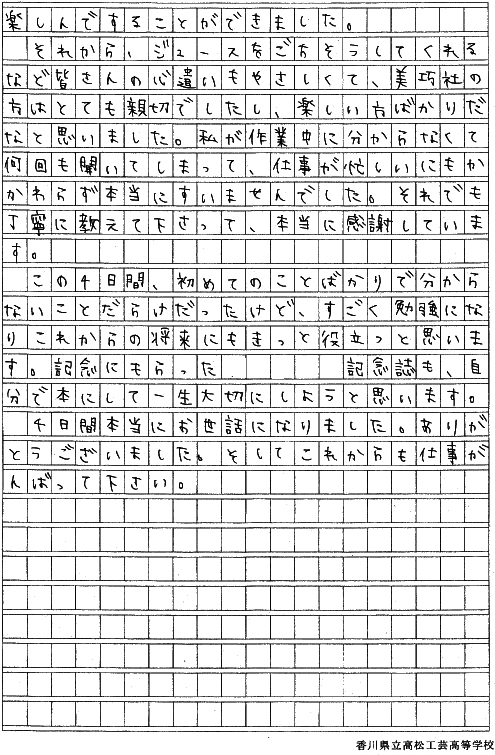 楽しんですることができました。
それから、ジュースをごちそうしてくれる
など皆さんの心遣いもやさしくて、美巧社の
方はとても親切でしたし、楽しい方ばかりだ
なと思いました。私が作業中に分からなくて
何回も聞いてしまって、仕事が忙しいにもか
かわらず本当にすいませんでした。それでも
丁寧に教えて下さって、本当に感謝していま
す。
この4日間、初めてのことばかりで分から
ないことだらけだったけど、すごく勉強にな
りこれからの将来にもきっと役立つと思いま
す。記念にもらった 記念誌も、自
分で本にして一生大切にしようと思います。
4日間本当にお世話になりました。ありが
とうございました。そしてこれからも仕事が
んばって下さい。
香川県立高松工芸高等学校